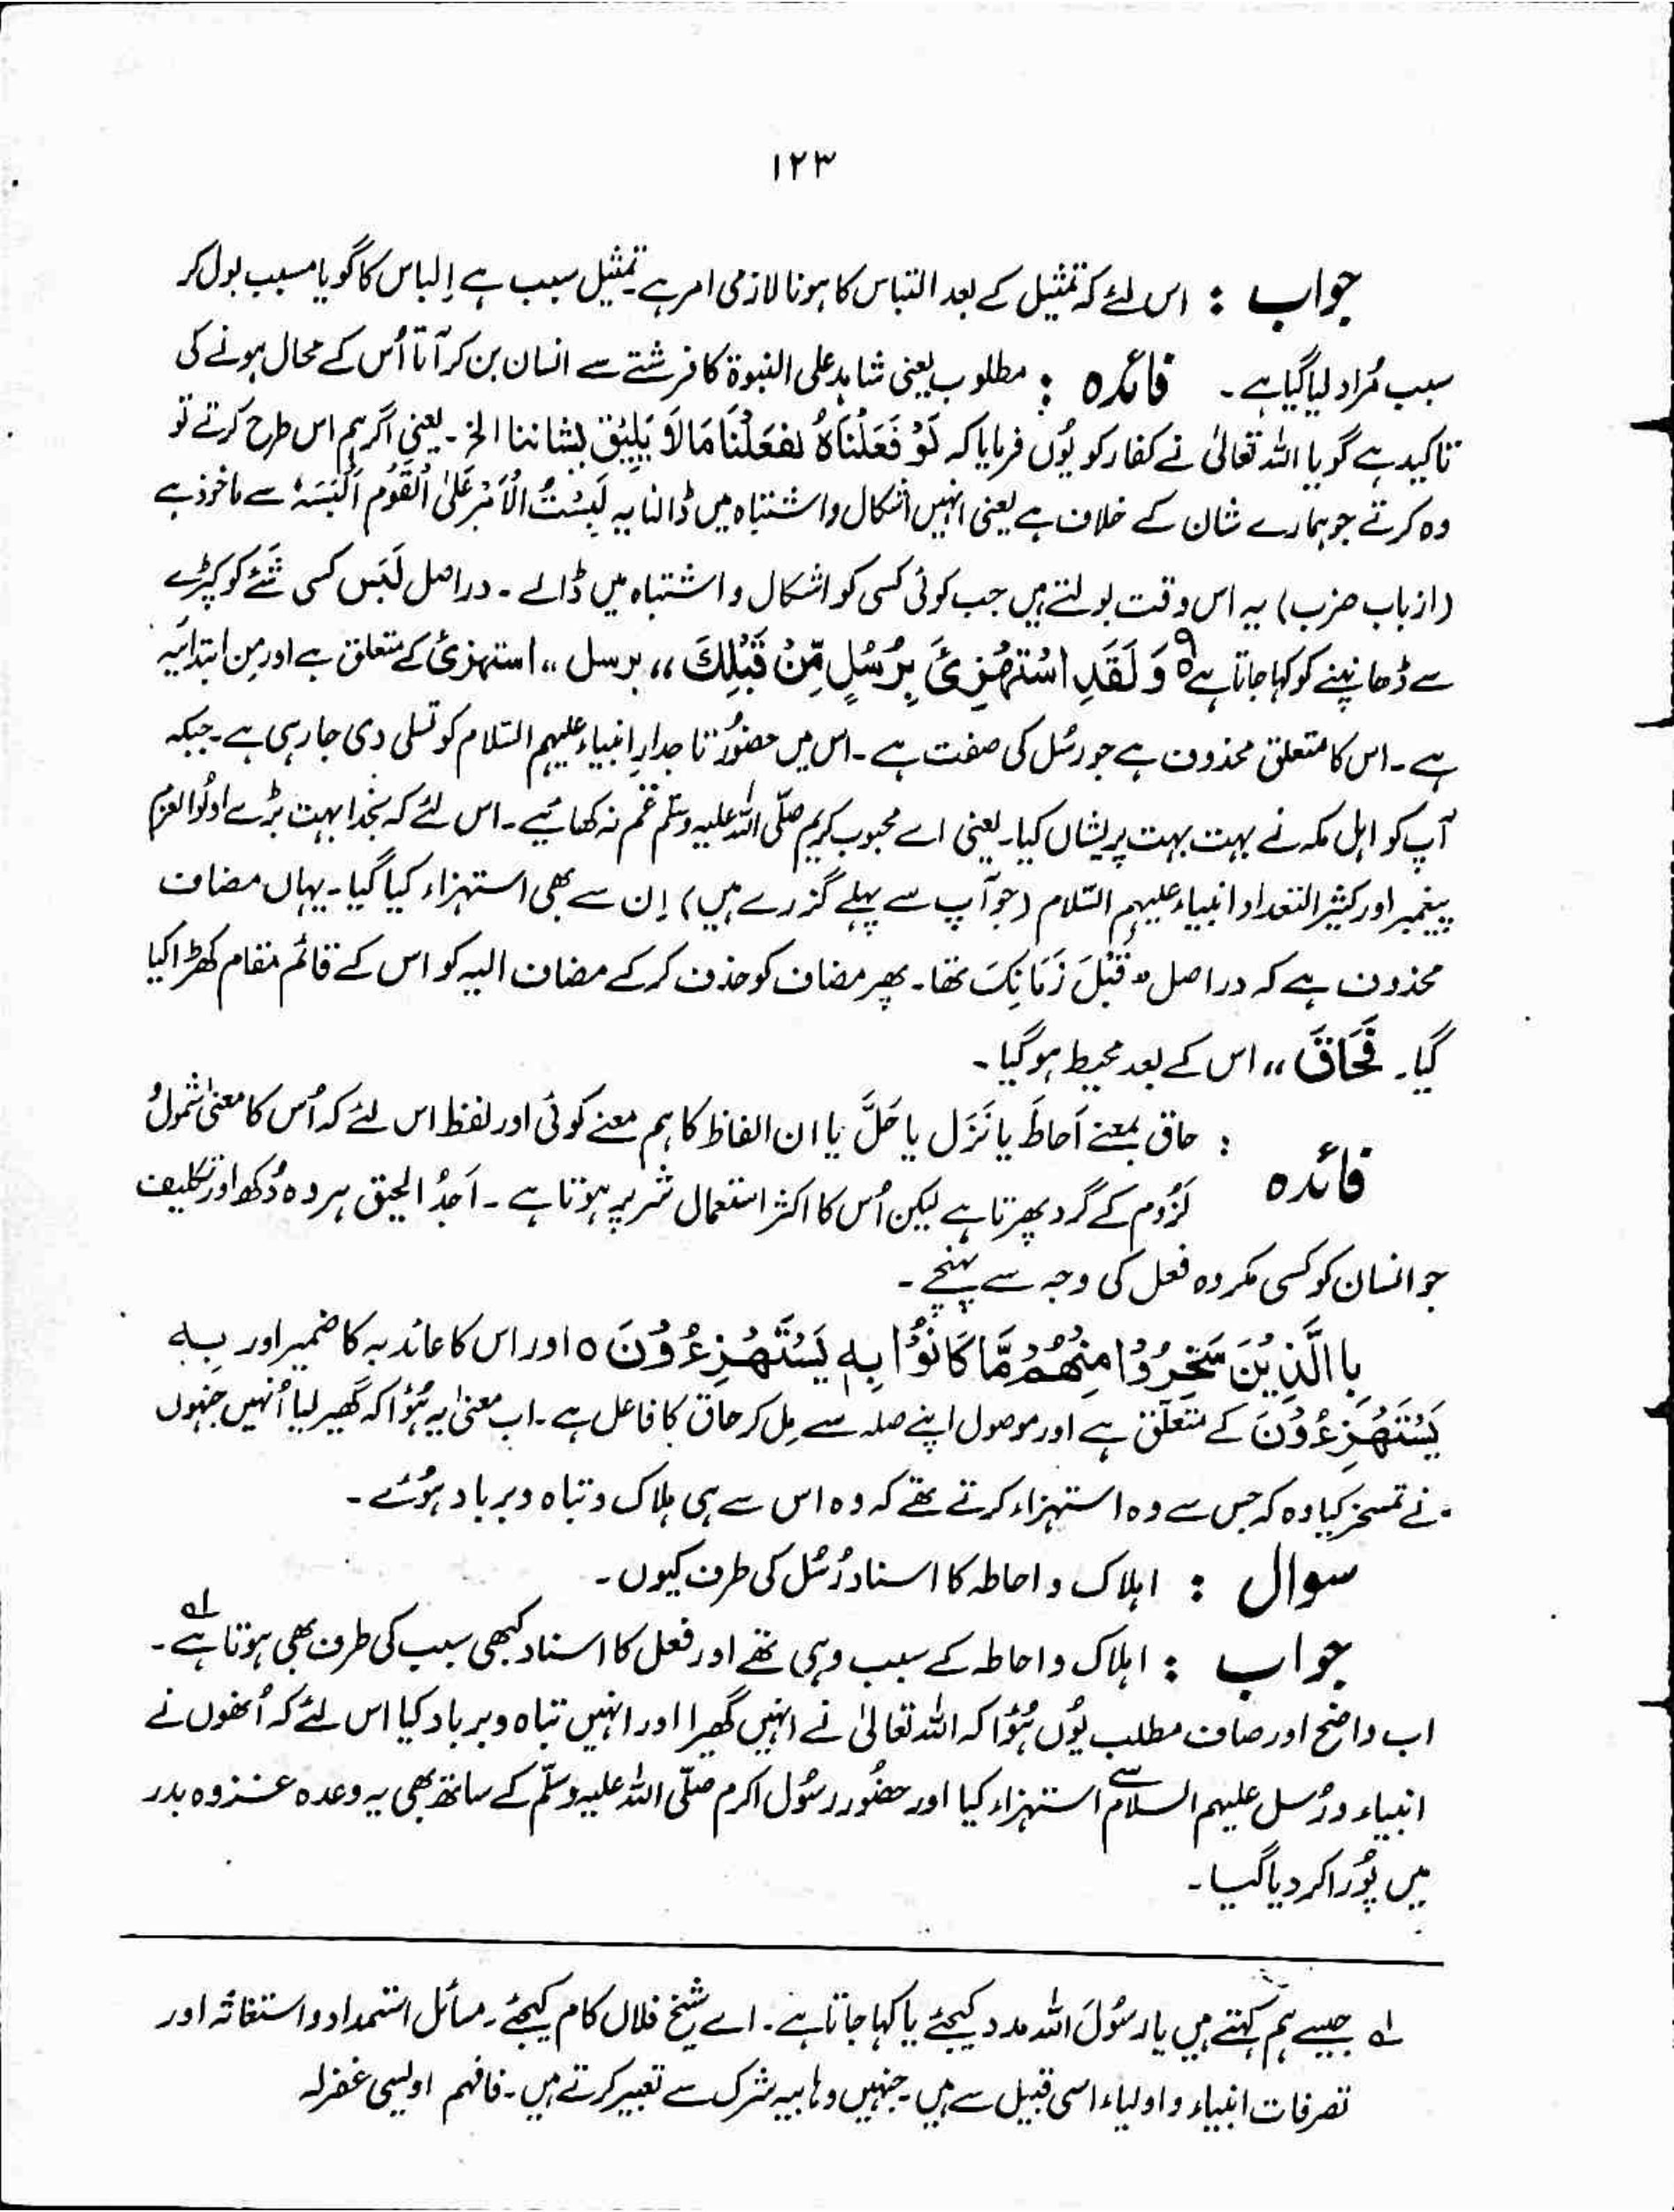 ۱۲۳
جواب : اس لئے کہ تمثیل کے بعد التباس کا ہونا لازمی امر ہے۔ تمثیل سبب ہے اِلباس کا گویا مسبب بول کر
سبب مُراد لیا گیا ہے۔ فائدہ : مطلوب یعنی شاہد علی النبوۃ کا فرشتے سے انسان بن کر آنا اُس کے محال ہونے کی
تاکید ہے گویا اللہ تعالیٰ نے کفار کو یُوں فرمایا کہ لَوْ فَعَلْنَاہُ لفعَلْنَا مَا لَا یَلِیْقُ بشاننا الخ۔ یعنی اگر ہم اس طرح کرتے تو
وہ کرتے جو ہمارے شان کے خلاف ہے یعنی انہیں اشکال و اشتباہ میں ڈالنا یہ لَبِسْتُ الْاَمْرَ عَلَی الْقَوْمِ اَلْبَسَہٗ سے ماخوذ ہے
(از باب ضرب) یہ اس وقت بولتے ہیں جب کوئی کسی کو اشکال و اشتباہ میں ڈالے۔ دراصل لَبَس کسی شَئے کو کپڑے
سے ڈھانپنے کو کہا جاتا ہے ٥ وَ لَقَدِ اسْتُهْزِئَ بِرُسُلٍ مِّنْ قَبْلِكَ ،، برسل ،، استہزئ کے متعلق ہے اور مِن ابتدائیہ
ہے۔ اس کا متعلق محذوف ہے جو رسُل کی صفت ہے۔ اس میں حضورُ تاجدارِ انبیاء علیہم السّلام کو تسلی دی جا رہی ہے۔ جبکہ
آپ کو اہل مکہ نے بہت بہت پریشاں کیا۔ یعنی اے محبوب کریم صلّی اللہ علیہ وسلّم غم نہ کھائیے۔ اس لئے کہ بخدا بہت بڑے اولُوالعزم
پیغمبر اور کثیر التعداد انبیاء علیہم السّلام (جو آپ سے پہلے گزرے ہیں) اِن سے بھی استہزاء کیا گیا۔ یہاں مضاف
محذوف ہے کہ دراصل “ قَبْلَ زَمَانِكَ تھا۔ پھر مضاف کو حذف کر کے مضاف الیہ کو اس کے قائم مقام کھڑا کیا
گیا۔ فَحَاقَ ،، اس کے بعد محیط ہو گیا۔
فائدہ : حاق بمعنے اَحاطَ یا نَزَل یا حَلَّ یا ان الفاظ کا ہم معنے کوئی اور لفظ اس لئے کہ اُس کا معنیٰ شمولُ
لزُوم کے گرد پھرتا ہے لیکن اُس کا اکثر استعمال شر پر ہوتا ہے۔ الحیق ہر وہ دُکھ اور تکلیف
جو انسان کو کسی مکروہ فعل کی وجہ سے پہنچے۔
بِالَّذِیْنَ سَخِرُوْا مِنْهُمْ مَّا كَانُوْا بِهٖ یَسْتَهْزِءُوْنَ ٥ اور اس کا عائد بہ کا ضمیر اور بِهٖ
یَسْتَهْزِءُوْنَ کے متعلّق ہے اور موصول اپنے صلہ سے مِل کر حاق کا فاعل ہے۔ اب معنیٰ یہ ہُوٗا کہ گھیر لیا اُنہیں جنہوں
نے تمسخر کیا وہ کہ جس سے وہ استہزاء کرتے تھے کہ وہ اس سے ہی ہلاک و تباہ و برباد ہوئے۔
سوال : اہلاک و احاطہ کا اسناد رُسُل کی طرف کیوں۔
جواب : اہلاک و احاطہ کے سبب وہی تھے اور فعل کا اسناد کبھی سبب کی طرف بھی ہوتا ہے۔ لہ
اب واضح اور صاف مطلب یُوں ہُوٗا کہ اللہ تعالیٰ نے انہیں گھیرا اور انہیں تباہ و برباد کیا اس لئے کہ اُنھوں نے
انبیاء و رُسل علیہم السلام سے استہزاء کیا اور حضُور رسُول اکرم صلّی اللہ علیہ وسلّم کے ساتھ بھی یہ وعدہ غزوہ بدر
میں پُورا کر دیا گیا۔
لہ جیسے ہم کہتے ہیں یا رسُولَ اللہ مدد کیجئے یا کہا جاتا ہے۔ اے شیخ فلاں کام کیجئے۔ مسائل استمداد و استغاثہ اور
تصرفات انبیاء و اولیاء اسی قبیل سے ہیں۔ جنہیں وہابیہ شرک سے تعبیر کرتے ہیں۔ فافہم اویسی غفرلہ